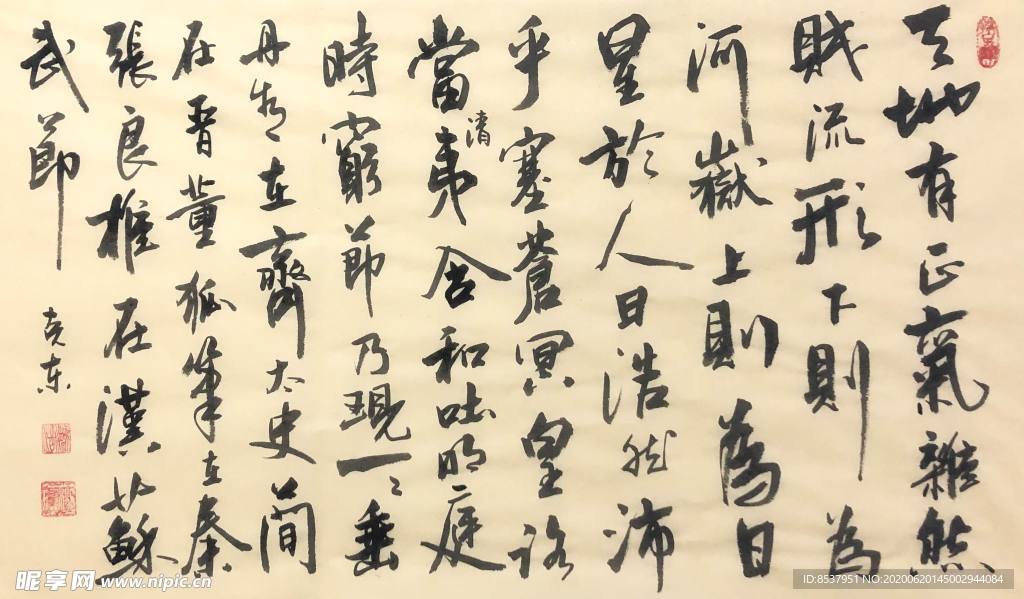 天地有正氣雜然
賦流形下則為
河嶽上則為日
星於人曰浩然沛
乎塞蒼冥皇路
當清夷含和吐明庭
時窮節乃現一一垂
丹青在齊太史簡
在晉董狐筆在秦
張良椎在漢蘇
武節
克东
昵享网 www.nipic.cn
ID:8537951 NO:20200620145002944084